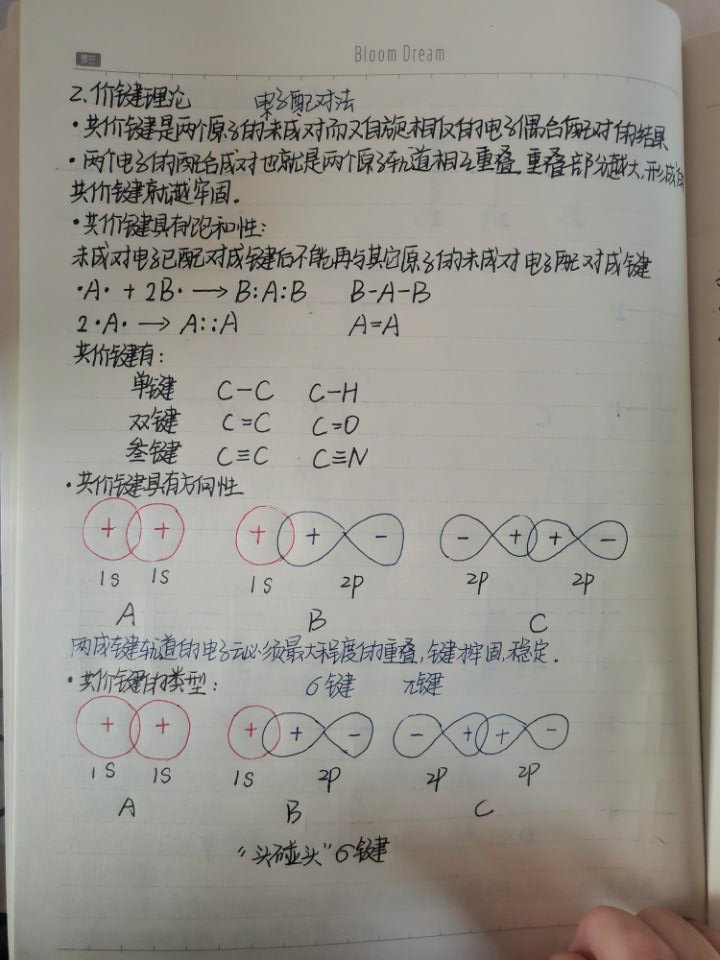 Bloom Dream
2.价键理论 电子配对法
·共价键是两个原子的未成对而又自旋相反的电子偶合配对的结果
·两个电子的配合成对也就是两个原子轨道相互重叠.重叠部分越大,形成的
共价键就越牢固.
·共价键具有饱和性:
未成对电子已配对成键后不能再与其它原子的未成对电子配对成键
·A· + 2B· → B:A:B B-A-B
2·A· → A::A A=A
共价键有:
单键 C-C C-H
双键 C=C C=O
叁键 C≡C C≡N
·共价键具有方向性
+ + + + - - + + -
1S 1S 1S 2P 2P 2P
A B C
两成键轨道的电子云必须最大程度的重叠,键才牢固.稳定.
·共价键的类型: 6键 π键
+ + + + - - + + -
1S 1S 1S 2P 2P 2P
A B C
"头碰头"6键